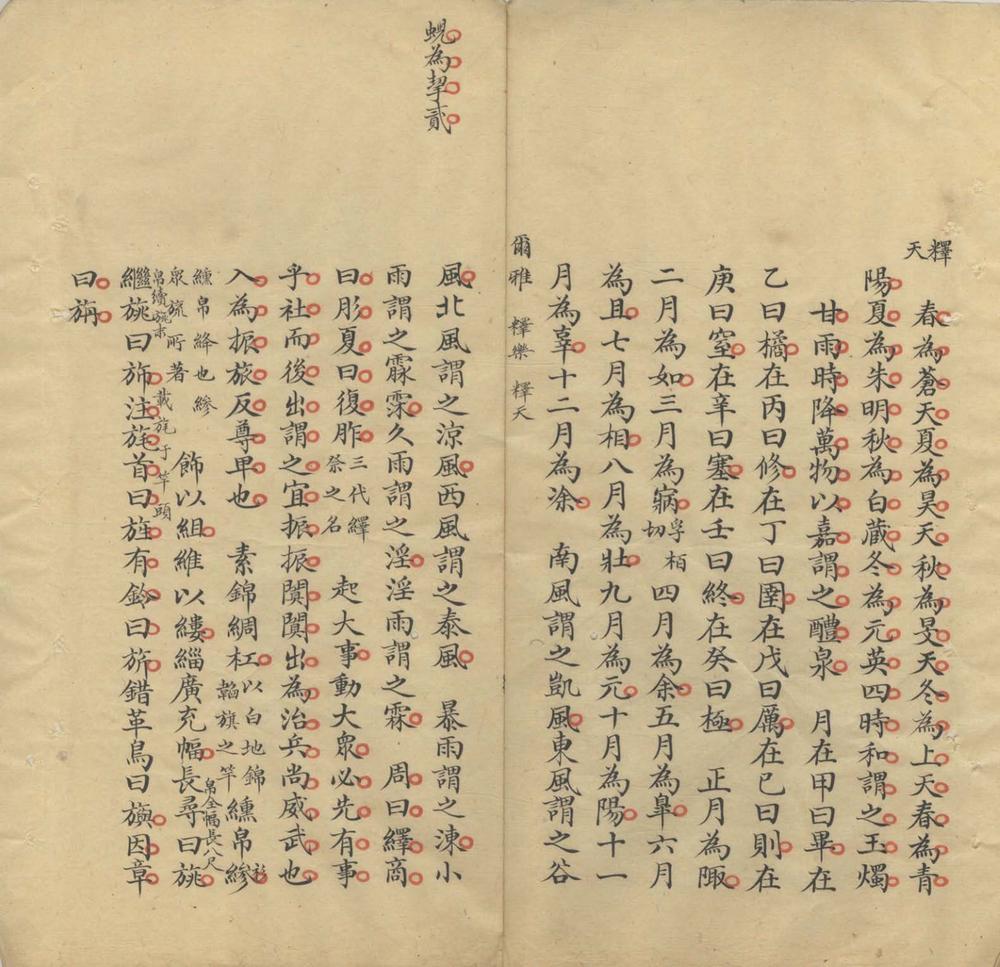 釋天
春為蒼天夏為昊天秋為旻天冬為上天春為青
陽夏為朱明秋為白藏冬為元英四時和謂之玉燭
甘雨時降萬物以嘉謂之醴泉　月在甲曰畢在
乙曰橘在丙曰修在丁曰圉在戊曰厲在已曰則在
庚曰窒在辛曰塞在壬曰終在癸曰極　正月為陬
二月為如三月為寎孚柄切四月為余五月為皐六月
為且七月為相八月為壯九月為元十月為陽十一
月為辜十二月為凃　南風謂之凱風東風謂之谷
爾雅　釋樂　釋天
蜺為挈貳
風北風謂之涼風西風謂之泰風　暴雨謂之涷小
雨謂之霡霂久雨謂之淫淫雨謂之霖　周曰繹商
曰肜夏曰復胙三代繹祭之名　起大事動大眾必先有事
乎社而後出謂之宜振振闐闐出為治兵尚威武也
入為振旅反尊卑也　素錦綢杠以白地錦韜旗之竿纁帛縿衫
纁帛絳也縿眾旒所著　飾以組維以縷緇廣充幅長尋曰旐帛全幅長八尺
帛續旐末
繼旐曰旆注旄首曰旌載旄于竿頭有鈴曰旂錯革鳥曰旟因章
曰旃